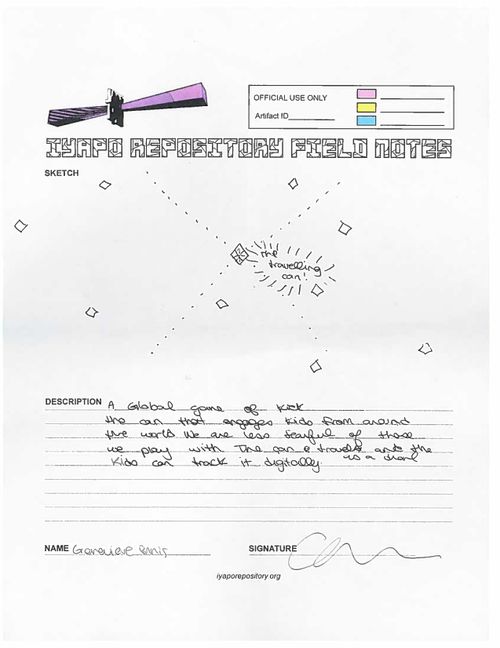 OFFICIAL USE ONLY
Artifact ID
IYAPO REPOSITORY FIELD NOTES
SKETCH
The
travelling
can!
DESCRIPTION
A Global game of Kick
the can that engages kids from around
the world We are less fearful of those
we play with The can travels and the
is a drone
Kids can track it digitally.
NAME Genevieve
SIGNATURE
iyaporepository.org